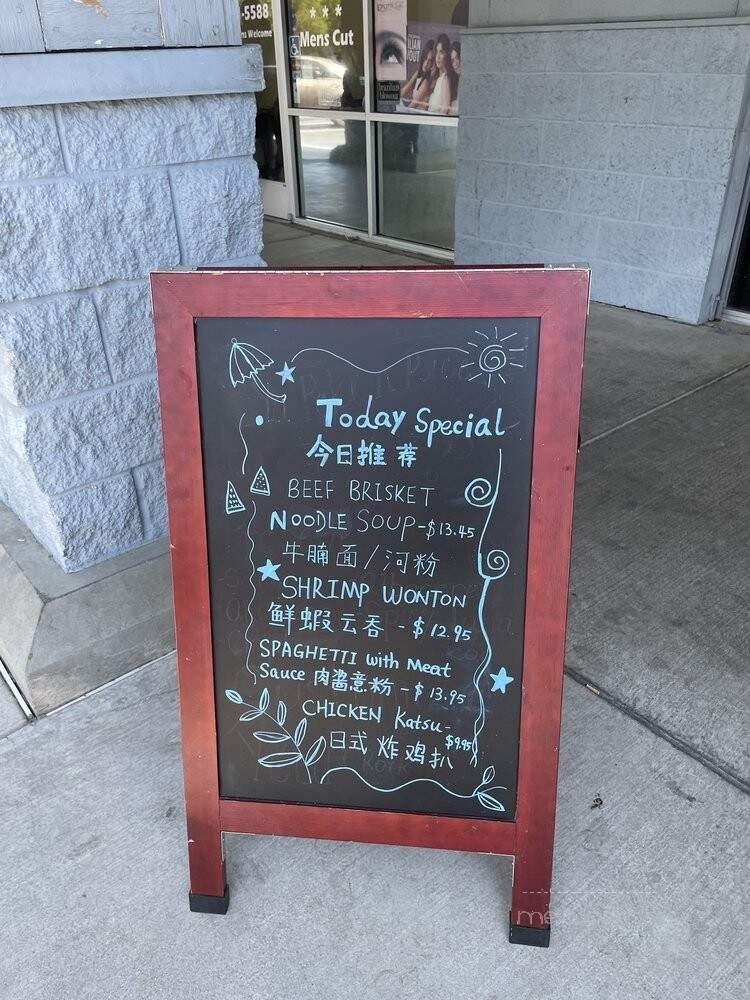 -5588
ns Welcome
***
Mens Cut
Today Special
今日推荐
BEEF BRISKET
NOODLE SOUP-$13.45
牛腩面/河粉
SHRIMP WONTON
鲜蝦云吞 - $12.95
SPAGHETTI with Meat
Sauce 肉醬意粉 - $13.95
CHICKEN Katsu-
$9.95
日式 炸鸡扒